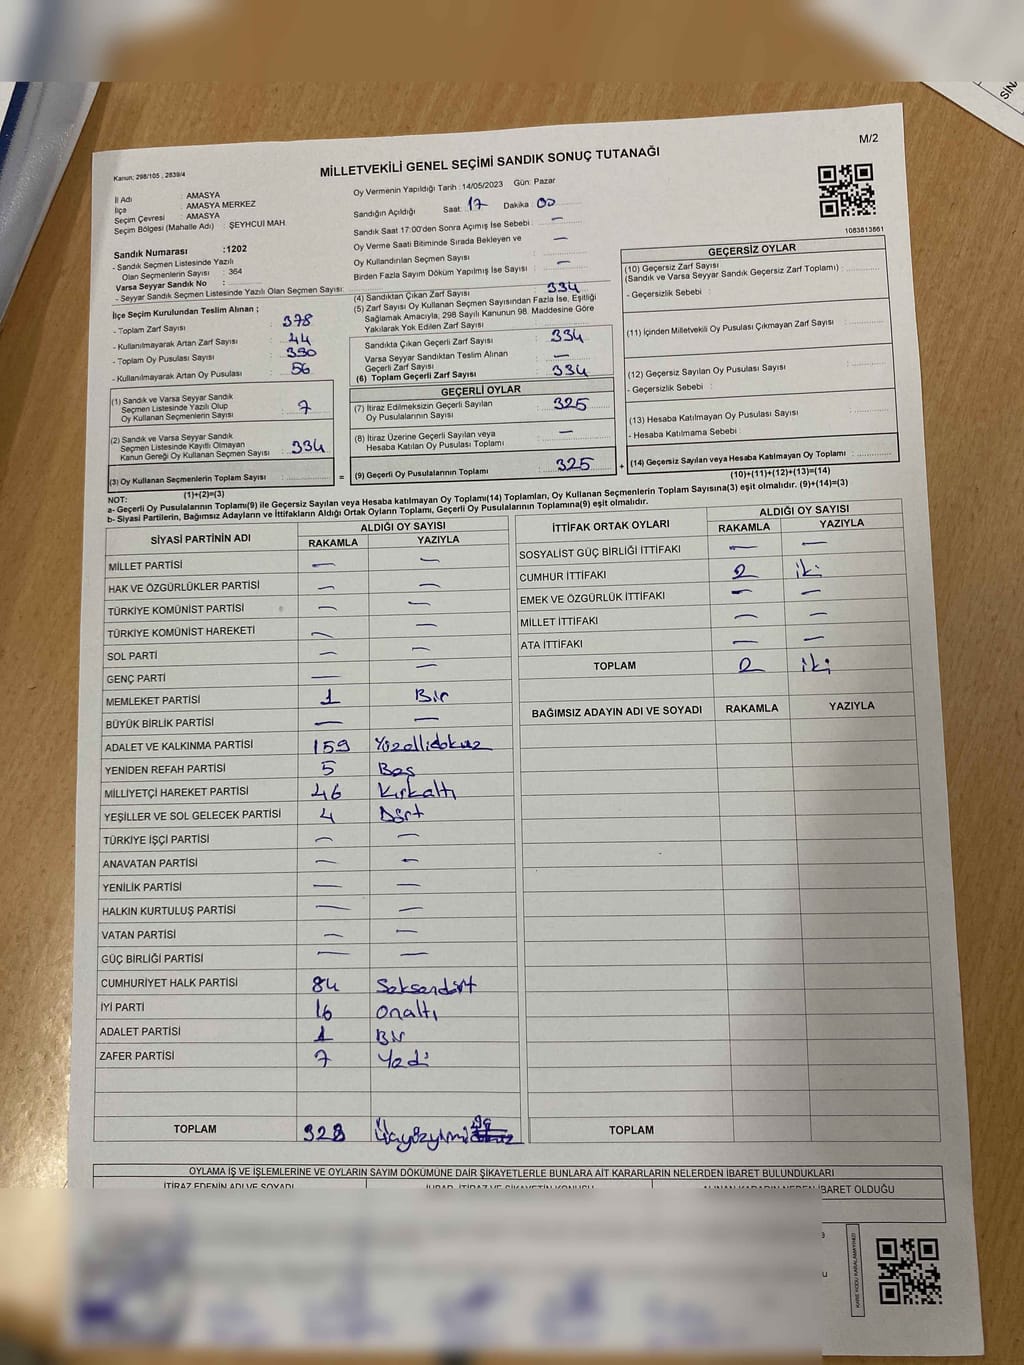 SİN
M/2
MİLLETVEKİLİ GENEL SEÇİMİ SANDIK SONUÇ TUTANAĞI
Kanun: 298/105 , 2839/4
İl Adı : AMASYA
İlçe : AMASYA MERKEZ
Seçim Çevresi : AMASYA
Seçim Bölgesi (Mahalle Adı) : ŞEYHCUİ MAH
Oy Vermenin Yapıldığı Tarih : 14/05/2023 Gün: Pazar
Sandığın Açıldığı Saat: 17 Dakika 00
Sandık Saat 17:00'den Sonra Açımış İse Sebebi : —
Oy Verme Saati Bitiminde Sırada Bekleyen ve
Oy Kullandırılan Seçmen Sayısı : —
Birden Fazla Sayım Döküm Yapılmış İse Sayısı : —
1083813861
Sandık Numarası :1202
- Sandık Seçmen Listesinde Yazılı
Olan Seçmenlerin Sayısı : 364
Varsa Seyyar Sandık No :
- Seyyar Sandık Seçmen Listesinde Yazılı Olan Seçmen Sayısı:
İlçe Seçim Kurulundan Teslim Alınan ;
- Toplam Zarf Sayısı : 378
- Kullanılmayarak Artan Zarf Sayısı : 44
- Toplam Oy Pusulası Sayısı : 390
- Kullanılmayarak Artan Oy Pusulası : 56
(1) Sandık ve Varsa Seyyar Sandık
Seçmen Listesinde Yazılı Olup
Oy Kullanan Seçmenlerin Sayısı : 7
(2) Sandık ve Varsa Seyyar Sandık
Seçmen Listesinde Kayıtlı Olmayan
Kanun Gereği Oy Kullanan Seçmen Sayısı : 334
(3) Oy Kullanan Seçmenlerin Toplam Sayısı :
(1)+(2)=(3)
(4) Sandıktan Çıkan Zarf Sayısı : 334
(5) Zarf Sayısı Oy Kullanan Seçmen Sayısından Fazla İse, Eşitliği
Sağlamak Amacıyla, 298 Sayılı Kanunun 98. Maddesine Göre
Yakılarak Yok Edilen Zarf Sayısı :
Sandıkta Çıkan Geçerli Zarf Sayısı : 334
Varsa Seyyar Sandıktan Teslim Alınan
Geçerli Zarf Sayısı : —
(6) Toplam Geçerli Zarf Sayısı : 334
GEÇERLİ OYLAR
(7) İtiraz Edilmeksizin Geçerli Sayılan
Oy Pusulalarının Sayısı : 325
(8) İtiraz Üzerine Geçerli Sayılan veya
Hesaba Katılan Oy Pusulası Toplamı : —
= (9) Geçerli Oy Pusulalarının Toplamı : 325 +
GEÇERSİZ OYLAR
(10) Geçersiz Zarf Sayısı
(Sandık ve Varsa Seyyar Sandık Geçersiz Zarf Toplamı) :
- Geçersizlik Sebebi :
(11) İçinden Milletvekili Oy Pusulası Çıkmayan Zarf Sayısı :
(12) Geçersiz Sayılan Oy Pusulası Sayısı :
- Geçersizlik Sebebi :
(13) Hesaba Katılmayan Oy Pusulası Sayısı :
- Hesaba Katılmama Sebebi :
(14) Geçersiz Sayılan veya Hesaba Katılmayan Oy Toplamı :
(10)+(11)+(12)+(13)=(14)
NOT:
a- Geçerli Oy Pusulalarının Toplamı(9) ile Geçersiz Sayılan veya Hesaba katılmayan Oy Toplamı(14) Toplamları, Oy Kullanan Seçmenlerin Toplam Sayısına(3) eşit olmalıdır. (9)+(14)=(3)
b- Siyasi Partilerin, Bağımsız Adayların ve İttifakların Aldığı Ortak Oyların Toplamı, Geçerli Oy Pusulalarının Toplamına(9) eşit olmalıdır.
SİYASİ PARTİNİN ADI ALDIĞI OY SAYISI
RAKAMLA YAZIYLA
MİLLET PARTİSİ — —
HAK VE ÖZGÜRLÜKLER PARTİSİ — —
TÜRKİYE KOMÜNİST PARTİSİ — —
TÜRKİYE KOMÜNİST HAREKETİ — —
SOL PARTİ — —
GENÇ PARTİ — —
MEMLEKET PARTİSİ 1 Bir
BÜYÜK BİRLİK PARTİSİ — —
ADALET VE KALKINMA PARTİSİ 159 Yüzellidokuz
YENİDEN REFAH PARTİSİ 5 Beş
MİLLİYETÇİ HAREKET PARTİSİ 46 Kırkaltı
YEŞİLLER VE SOL GELECEK PARTİSİ 4 Dört
TÜRKİYE İŞÇİ PARTİSİ — —
ANAVATAN PARTİSİ — —
YENİLİK PARTİSİ — —
HALKIN KURTULUŞ PARTİSİ — —
VATAN PARTİSİ — —
GÜÇ BİRLİĞİ PARTİSİ — —
CUMHURİYET HALK PARTİSİ 84 Seksendört
İYİ PARTİ 16 Onaltı
ADALET PARTİSİ 1 Bir
ZAFER PARTİSİ 7 Yedi
TOPLAM 323 Üçyüzyirmi
İTTİFAK ORTAK OYLARI ALDIĞI OY SAYISI
RAKAMLA YAZIYLA
SOSYALİST GÜÇ BİRLİĞİ İTTİFAKI — —
CUMHUR İTTİFAKI 2 iki
EMEK VE ÖZGÜRLÜK İTTİFAKI — —
MİLLET İTTİFAKI — —
ATA İTTİFAKI — —
TOPLAM 2 iki
BAĞIMSIZ ADAYIN ADI VE SOYADI RAKAMLA YAZIYLA
TOPLAM
OYLAMA İŞ VE İŞLEMLERİNE VE OYLARIN SAYIM DÖKÜMÜNE DAİR ŞİKAYETLERLE BUNLARA AİT KARARLARIN NELERDEN İBARET BULUNDUKLARI
İTİRAZ EDENİN ADI VE SOYADI
İBARET OLDUĞU
KARE KODU KARALAMAYINIZ!